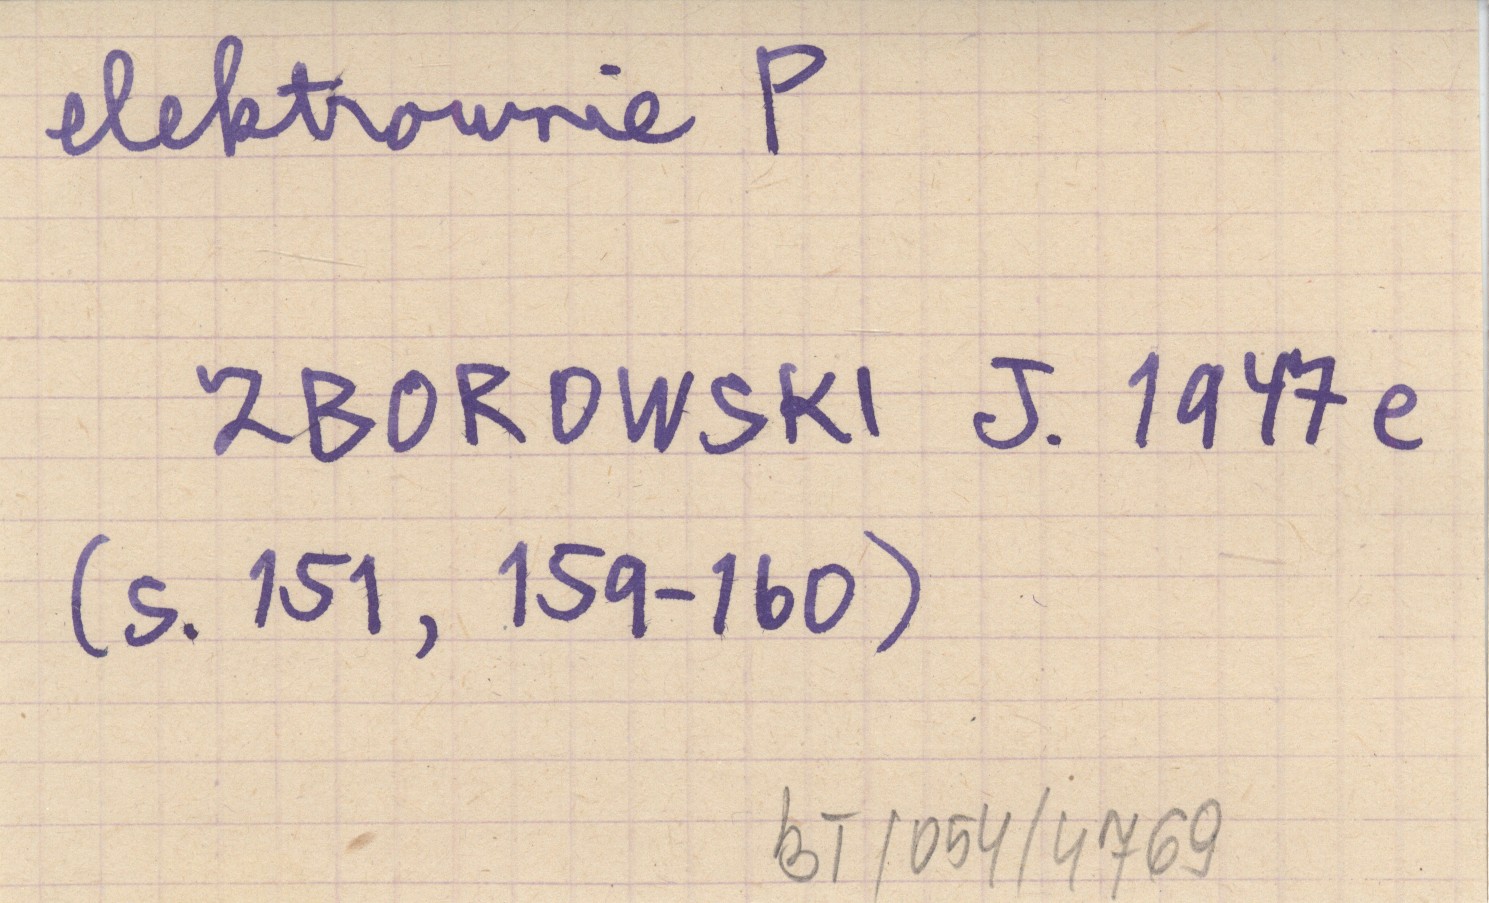 elektrownie P
ZBOROWSKI J. 1947e
(s. 151, 159-160)
BT/054/4769